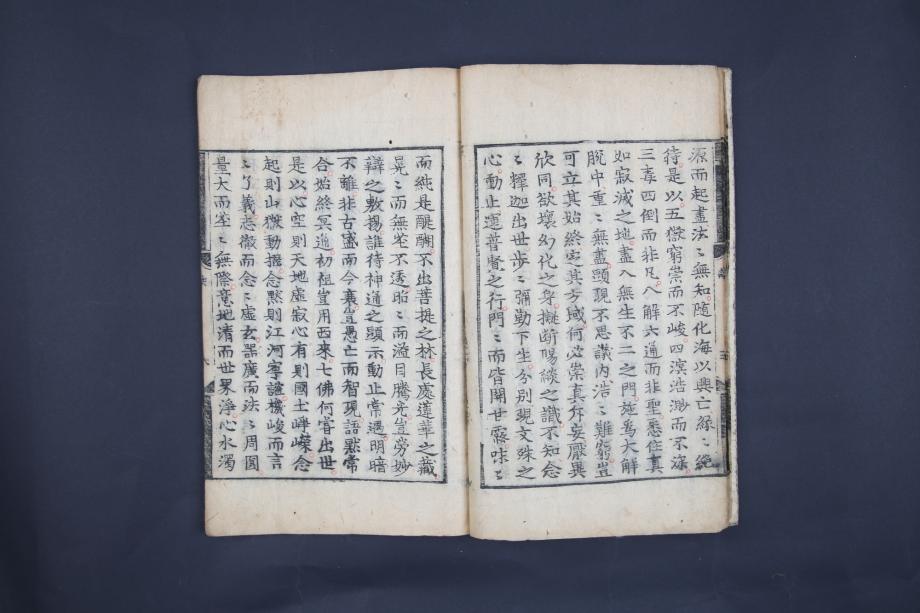 源而起盡法〻無知隨化海以興亡緣〻絕
待是以五嶽穹崇而不峻四溟浩渺而不深
三毒四倒而非凡八解六通而非聖悉住真
如寂滅之地盡入無生不二之門施為大解
脫中重〻無盡顯現不思議內浩〻難窮豈
可立其始終定其方域何必崇真斥妄厭異
欣同欲壞幻化之身擬斷陽燄之識不知念
〻釋迦出世步〻彌勒下生分別現文殊之
心動止運普賢之行門〻而皆開甘露味〻
而純是醍醐不出菩提之林長處蓮華之藏
晃〻而無塵不透昭〻而溢目騰光豈勞妙
辯之敷揚誰待神通之顯示動止常遇明暗
不離非古盛而今衰豈愚亡而智現語默常
合始終冥通初祖豈用西來七佛何曾出世
是以心空則天地虛寂心有則國土崢嶸念
起則山嶽動搖念默則江河寧謐機峻而言
〻了義志徹而念〻虛玄器廣而法〻周圓
量大而塵〻無際意地清而世界淨心水濁